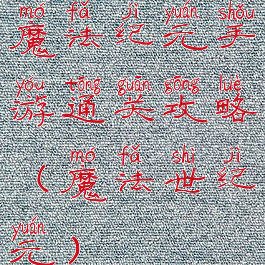 mó fǎ jì yuán shǒu
魔法纪元手
yóu tōng guān gōng lüè
游通关攻略
mó fǎ shì jì
(魔法世纪
yuán
元)